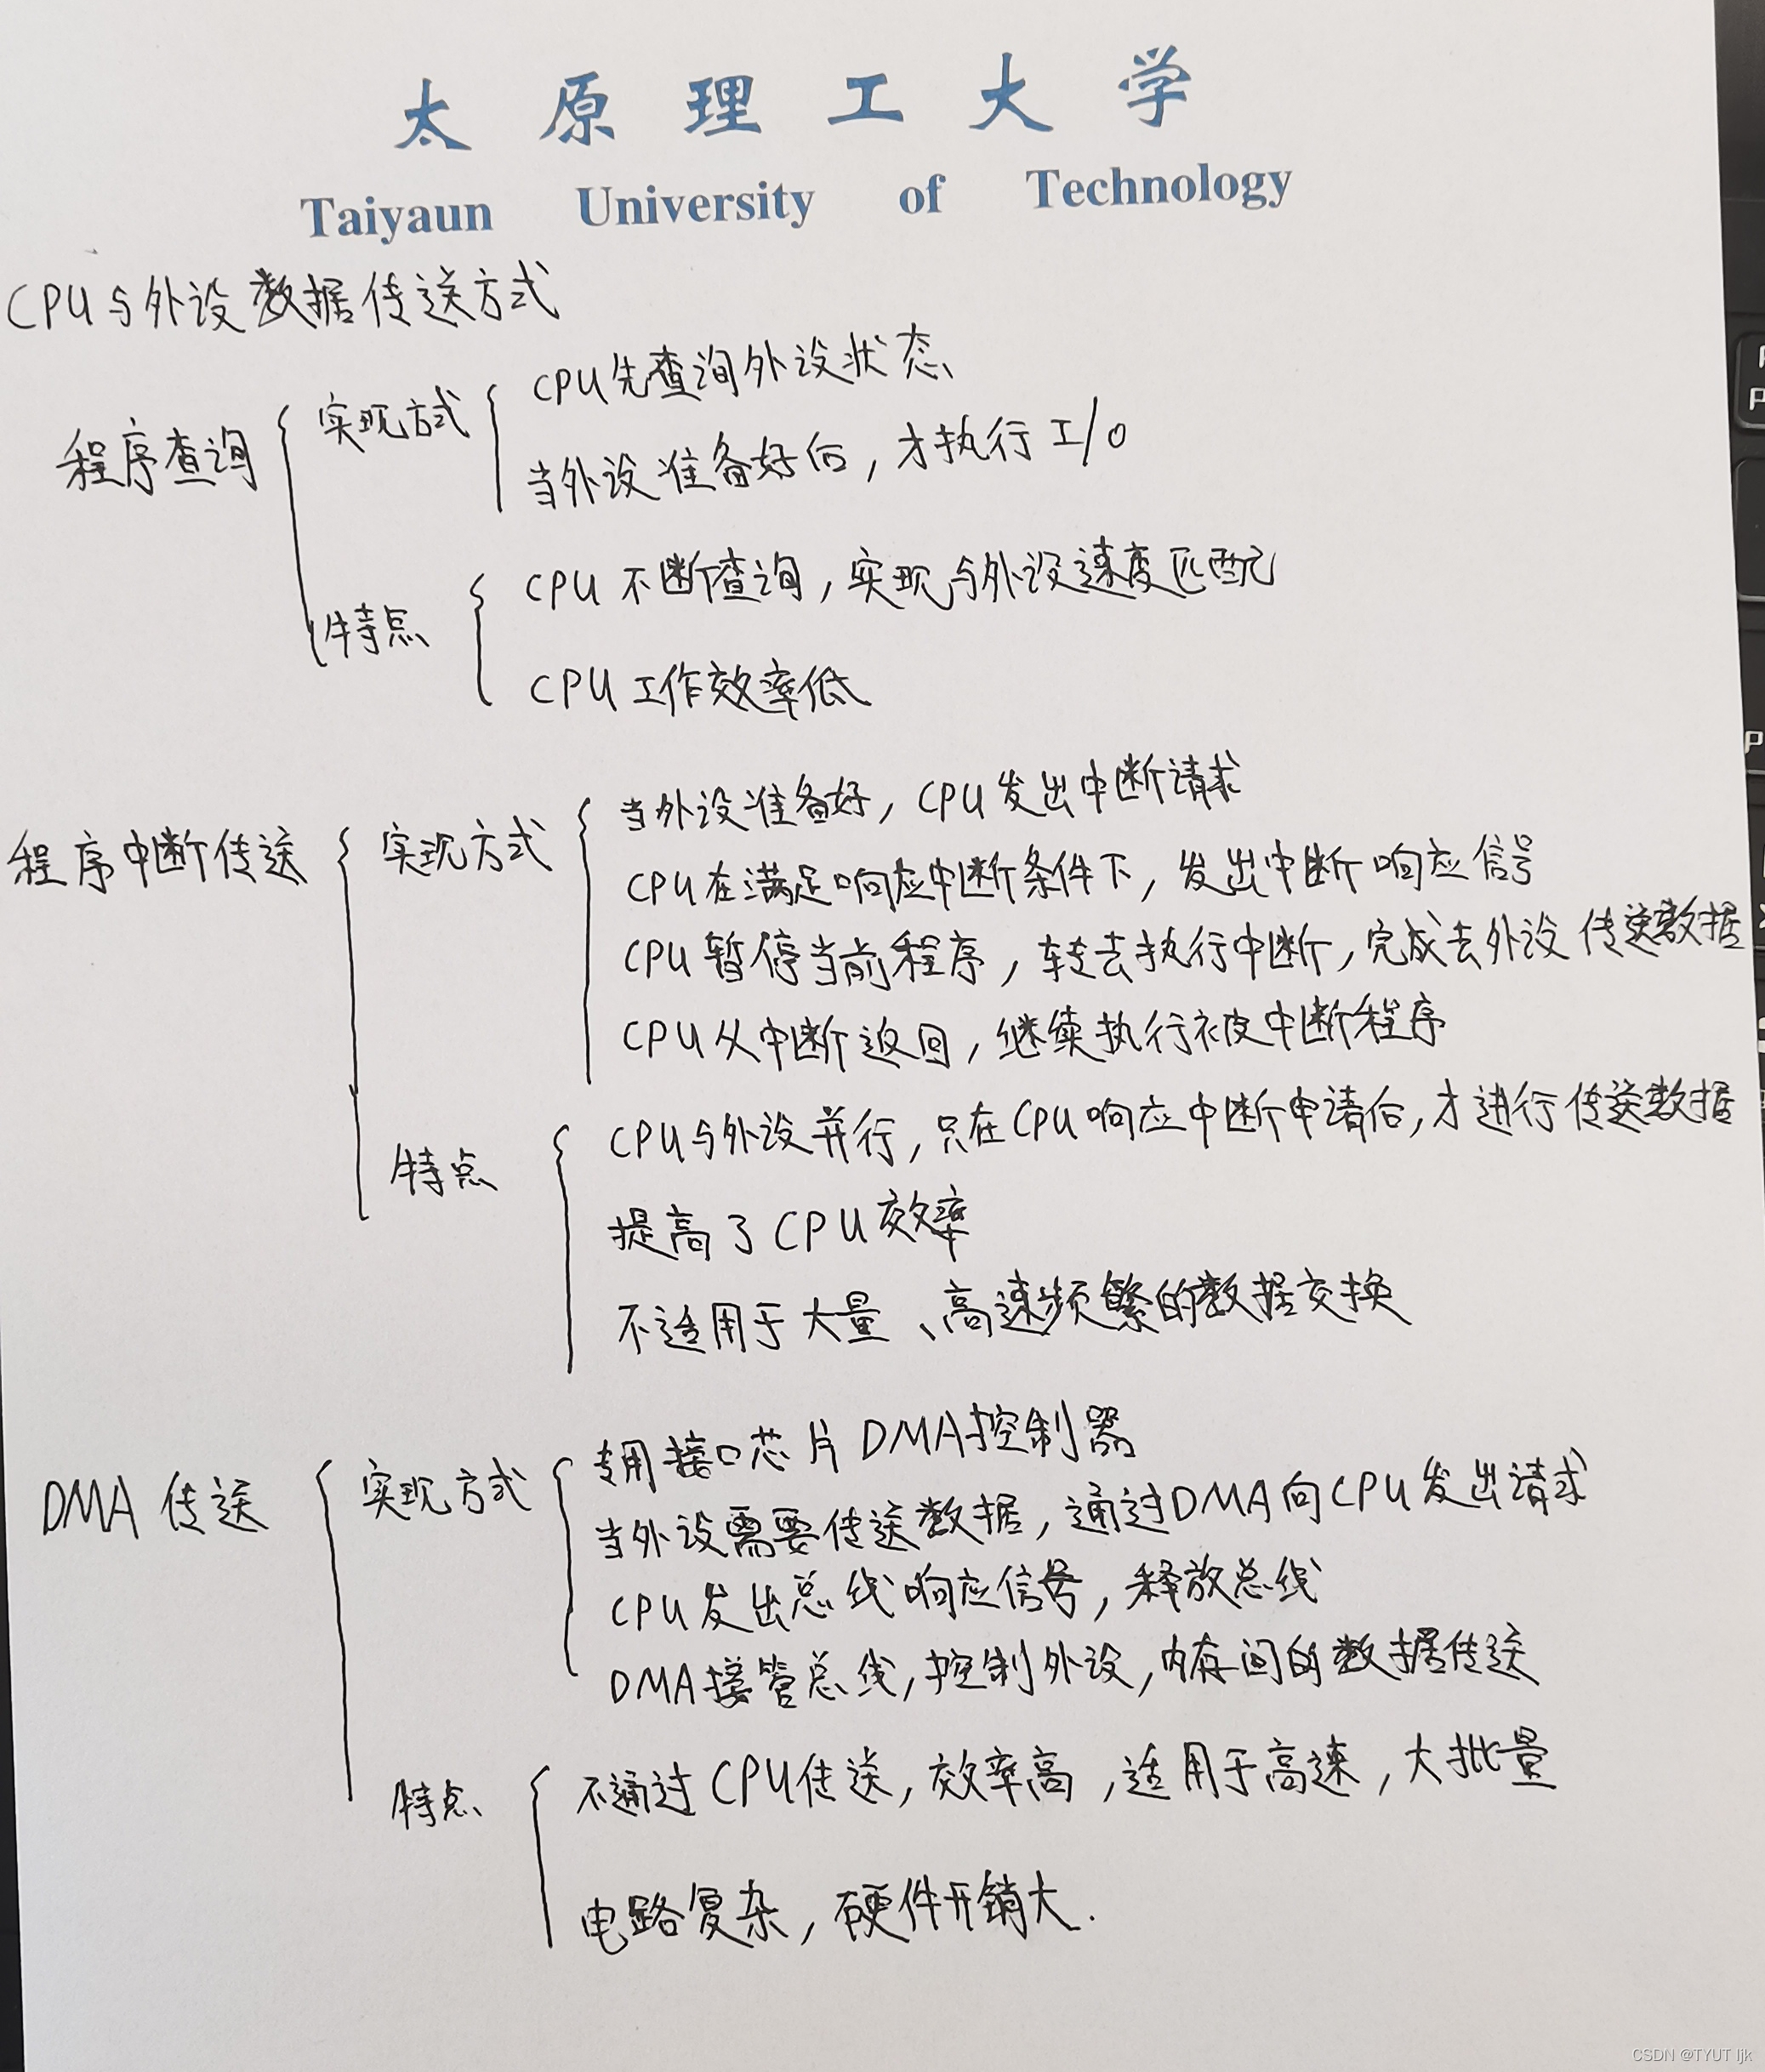 太原理工大学
Taiyaun University of Technology
CPU与外设数据传送方式
程序查询
实现方式
CPU先查询外设状态
当外设准备好后，才执行I/O
特点
CPU不断查询，实现与外设速度匹配
CPU工作效率低
程序中断传送
实现方式
当外设准备好，CPU发出中断请求
CPU在满足响应中断条件下，发出中断响应信号
CPU暂停当前程序，转去执行中断，完成去外设传送数据
CPU从中断返回，继续执行被中断程序
特点
CPU与外设并行，只在CPU响应中断申请后，才进行传送数据
提高了CPU效率
不适用于大量、高速频繁的数据交换
DMA传送
实现方式
专用接口芯片DMA控制器
当外设需要传送数据，通过DMA向CPU发出请求
CPU发出总线响应信号，释放总线
DMA接管总线，控制外设，内存间的数据传送
特点
不通过CPU传送，效率高，适用于高速，大批量
电路复杂，硬件开销大.
CSDN @TYUT ljk